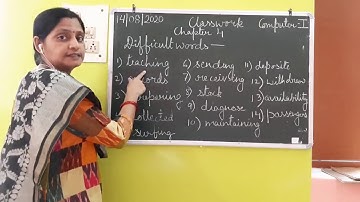 14/08/2020 Classwork Computer-I
Chapter 4
Difficult words —
1) teaching 6) sending 11) deposite
2) words 7) receiving 12) withdraw
3) 8) stock 13) availability
collected 9) diagnose 14) passengers
surfing 10) maintaining